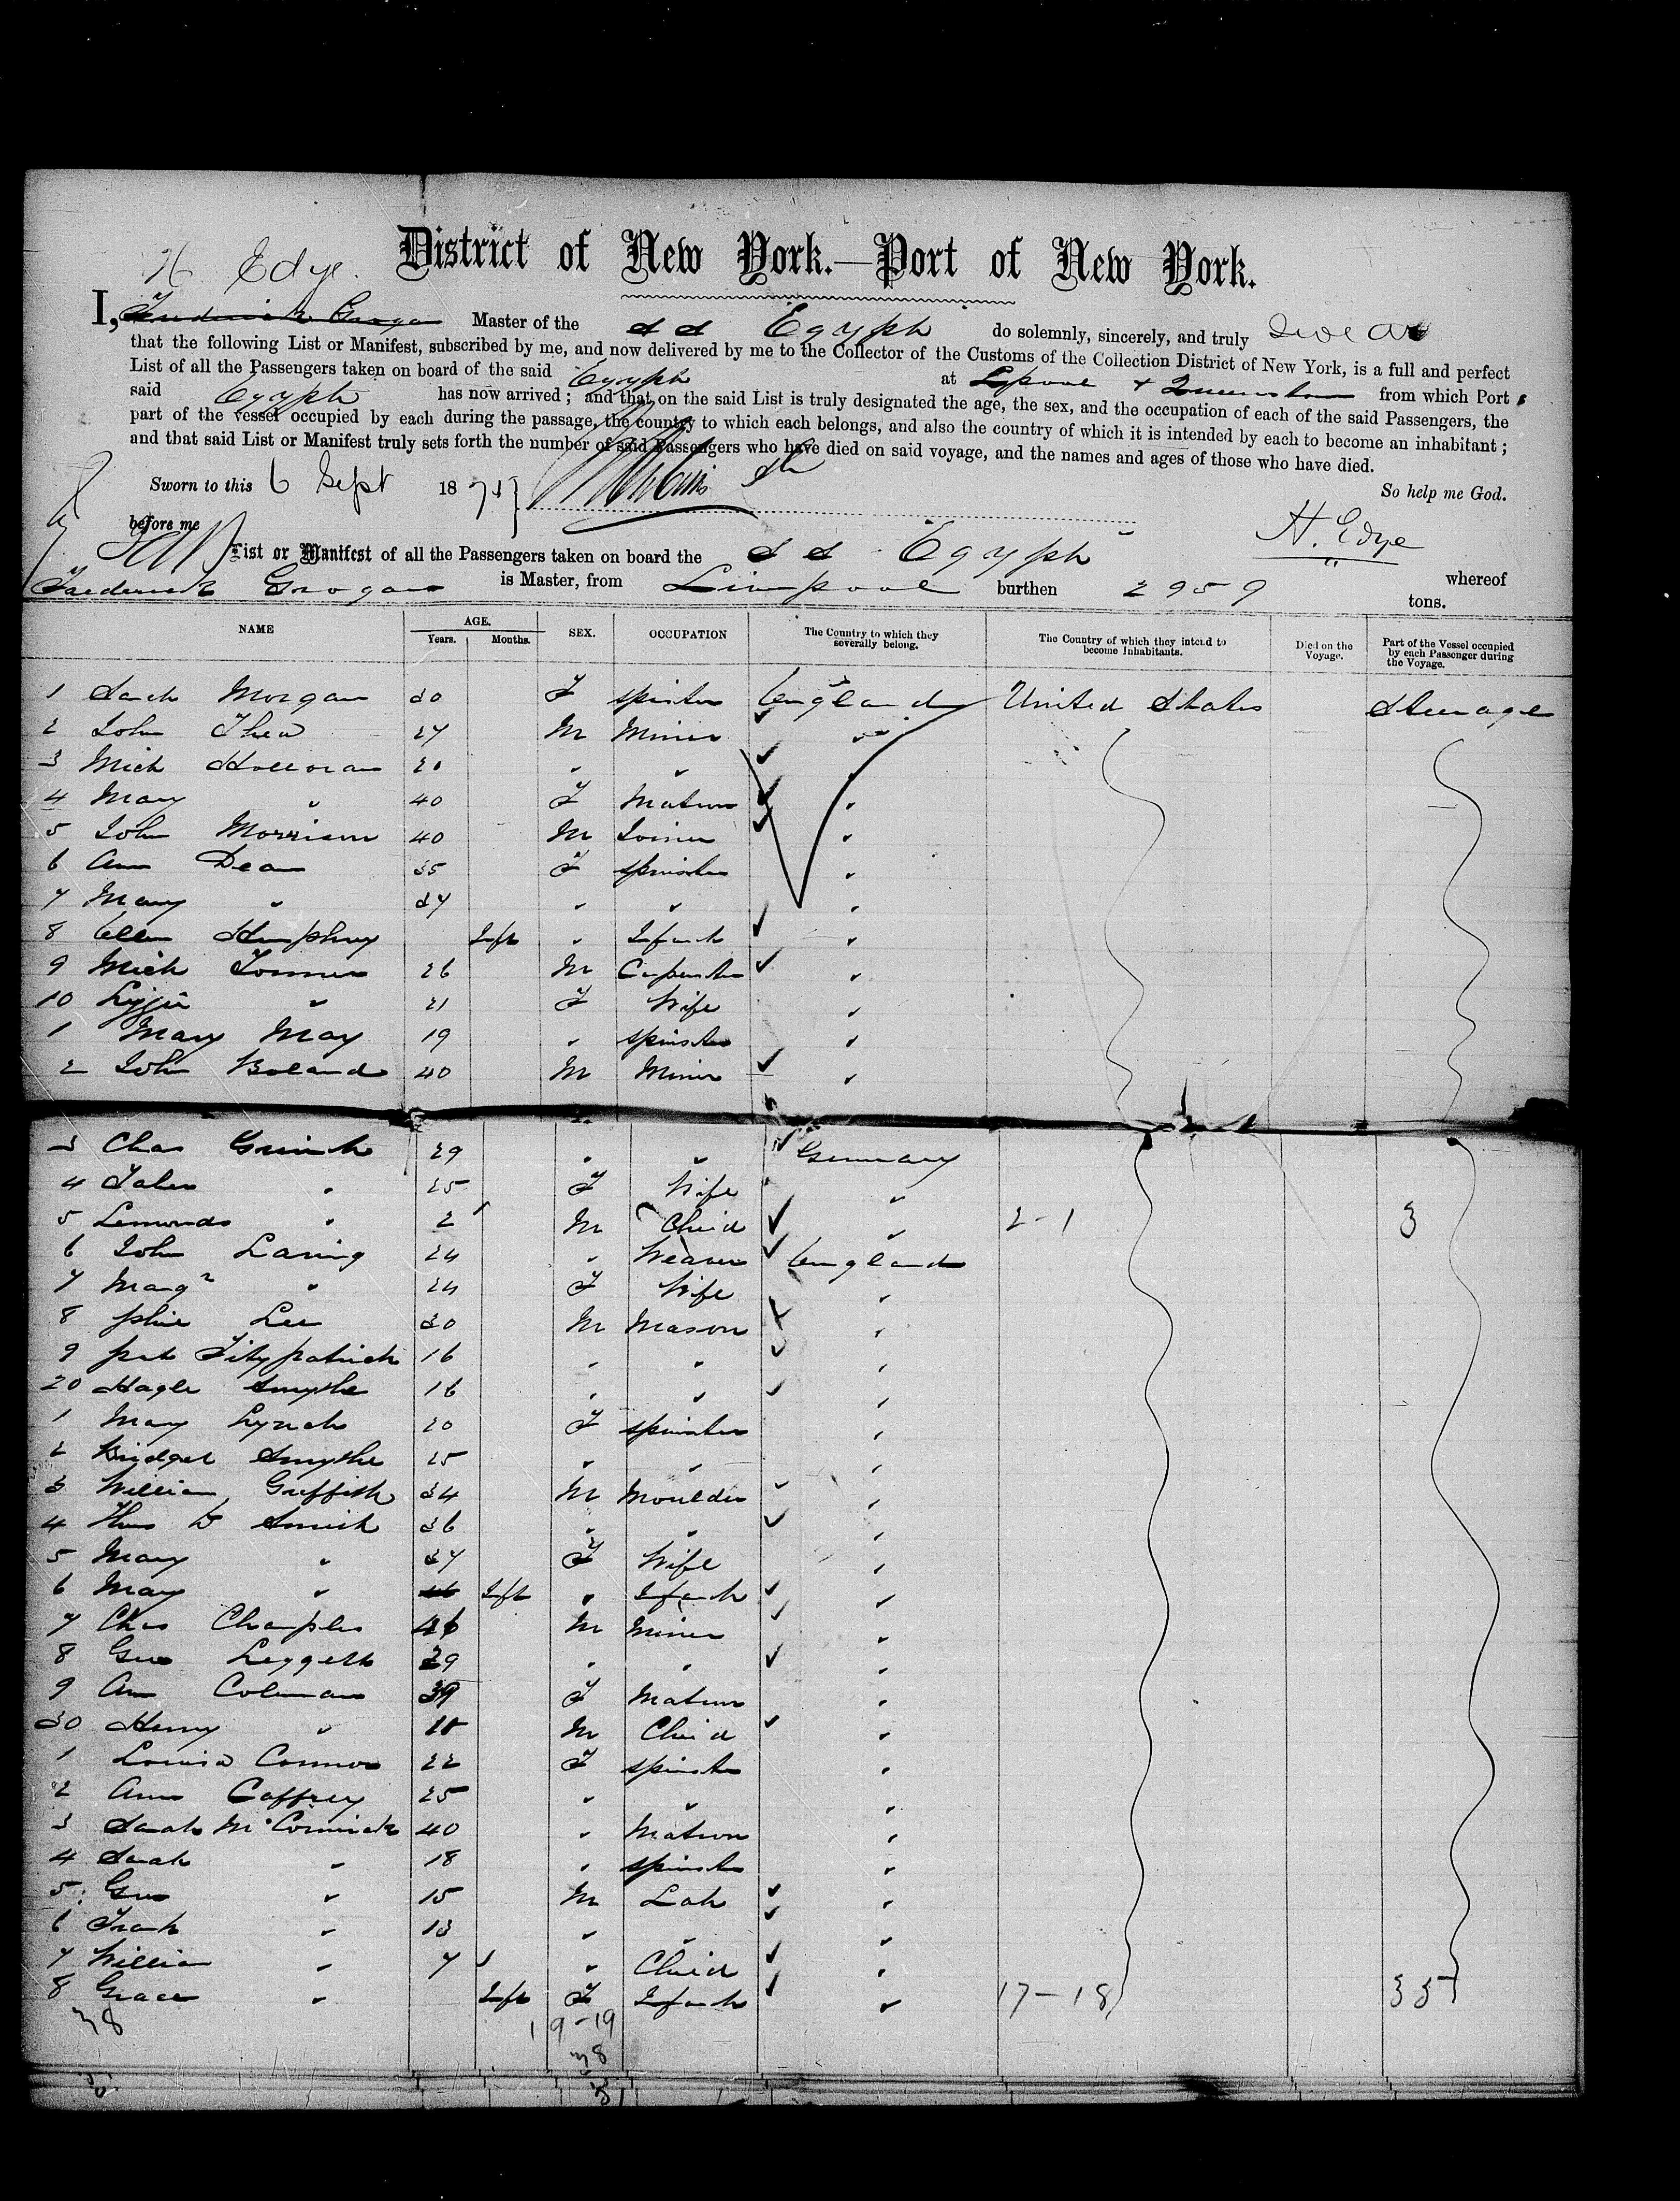 District of New York.—Port of New York.
H Edye.
I, Frederick Grogan Master of the S S Egypt do solemnly, sincerely, and truly swear
that the following List or Manifest, subscribed by me, and now delivered by me to the Collector of the Customs of the Collection District of New York, is a full and perfect
List of all the Passengers taken on board of the said Egypt at Lpool & Queenstown from which Port
said Egypt has now arrived; and that on the said List is truly designated the age, the sex, and the occupation of each of the said Passengers, the
part of the vessel occupied by each during the passage, the country to which each belongs, and also the country of which it is intended by each to become an inhabitant;
and that said List or Manifest truly sets forth the number of said Passengers who have died on said voyage, and the names and ages of those who have died.
Sworn to this 6 Sept 187 So help me God.
before me H. Edye
List or Manifest of all the Passengers taken on board the S S Egypt whereof
Frederick Grogan is Master, from Liverpool burthen 2959 tons.
NAME AGE. Years. Months. SEX. OCCUPATION The Country to which they severally belong. The Country of which they intend to become Inhabitants. Died on the Voyage. Part of the Vessel occupied by each Passenger during the Voyage.
1 Sarah Morgan 30 F spinster England United States Steerage
2 John Shea 27 M Miner "
3 Mich Holloran 20 " " "
4 Mary " 40 F Matron "
5 John Morrison 40 M Joiner "
6 Ann Dean 35 F spinster "
7 Mary " 37 " " "
8 Ellen Humphrey Inft " Infant "
9 Mich 26 M Carpenter "
10 Lizzie " 21 F Wife "
1 Mary May 19 " spinster "
2 John Boland 40 M Miner "
3 Chas 29 " " Germany
4 " 25 F Wife "
5 " 2 M Child " 2-1 3
6 John Laning 24 " Weaver England
7 Margt " 24 F Wife "
8 Phil Lee 30 M Mason "
9 Pat Fitzpatrick 16 " " "
20 Smythe 16 " " "
1 Mary Lynch 20 F spinster "
2 Bridget Smythe 25 " " "
3 William Griffith 34 M Moulder "
4 Thos W Smith 36 " " "
5 Mary " 37 F Wife "
6 May " Inft " Infant "
7 Chas 46 M Miner "
8 Geo Leggett 29 " " "
9 Ann Coleman 39 F Matron "
30 Henry " M Child "
1 Louisa Connor 22 F spinster "
2 Ann Caffrey 25 " " "
3 Sarah McCormick 40 " Matron "
4 Sarah " 18 " spinster "
5 Geo " 15 M Lab "
6 Frank " 13 " " "
7 William " 7 " Child "
8 Grace " Inft F Infant " 17-18 35
38 19-19
38